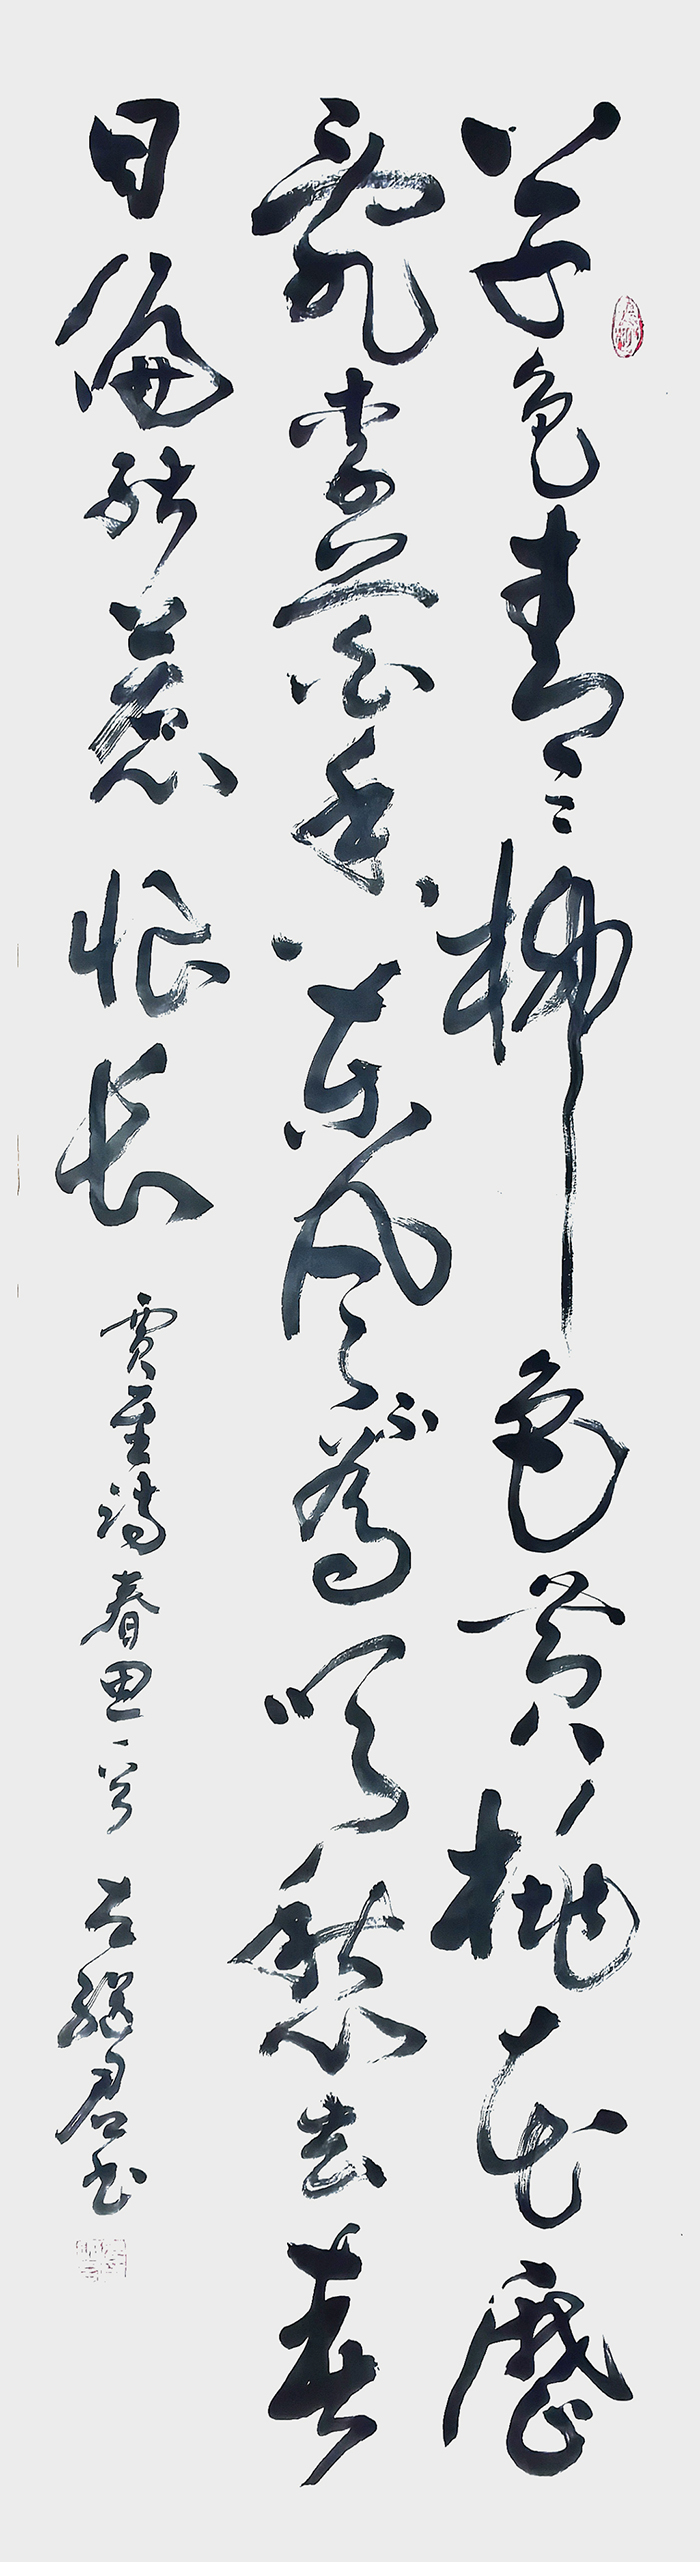 草色青青柳色黄桃花历
乱李花香东风不为吹愁去春
日偏能惹恨长
贾至诗春思一首 书